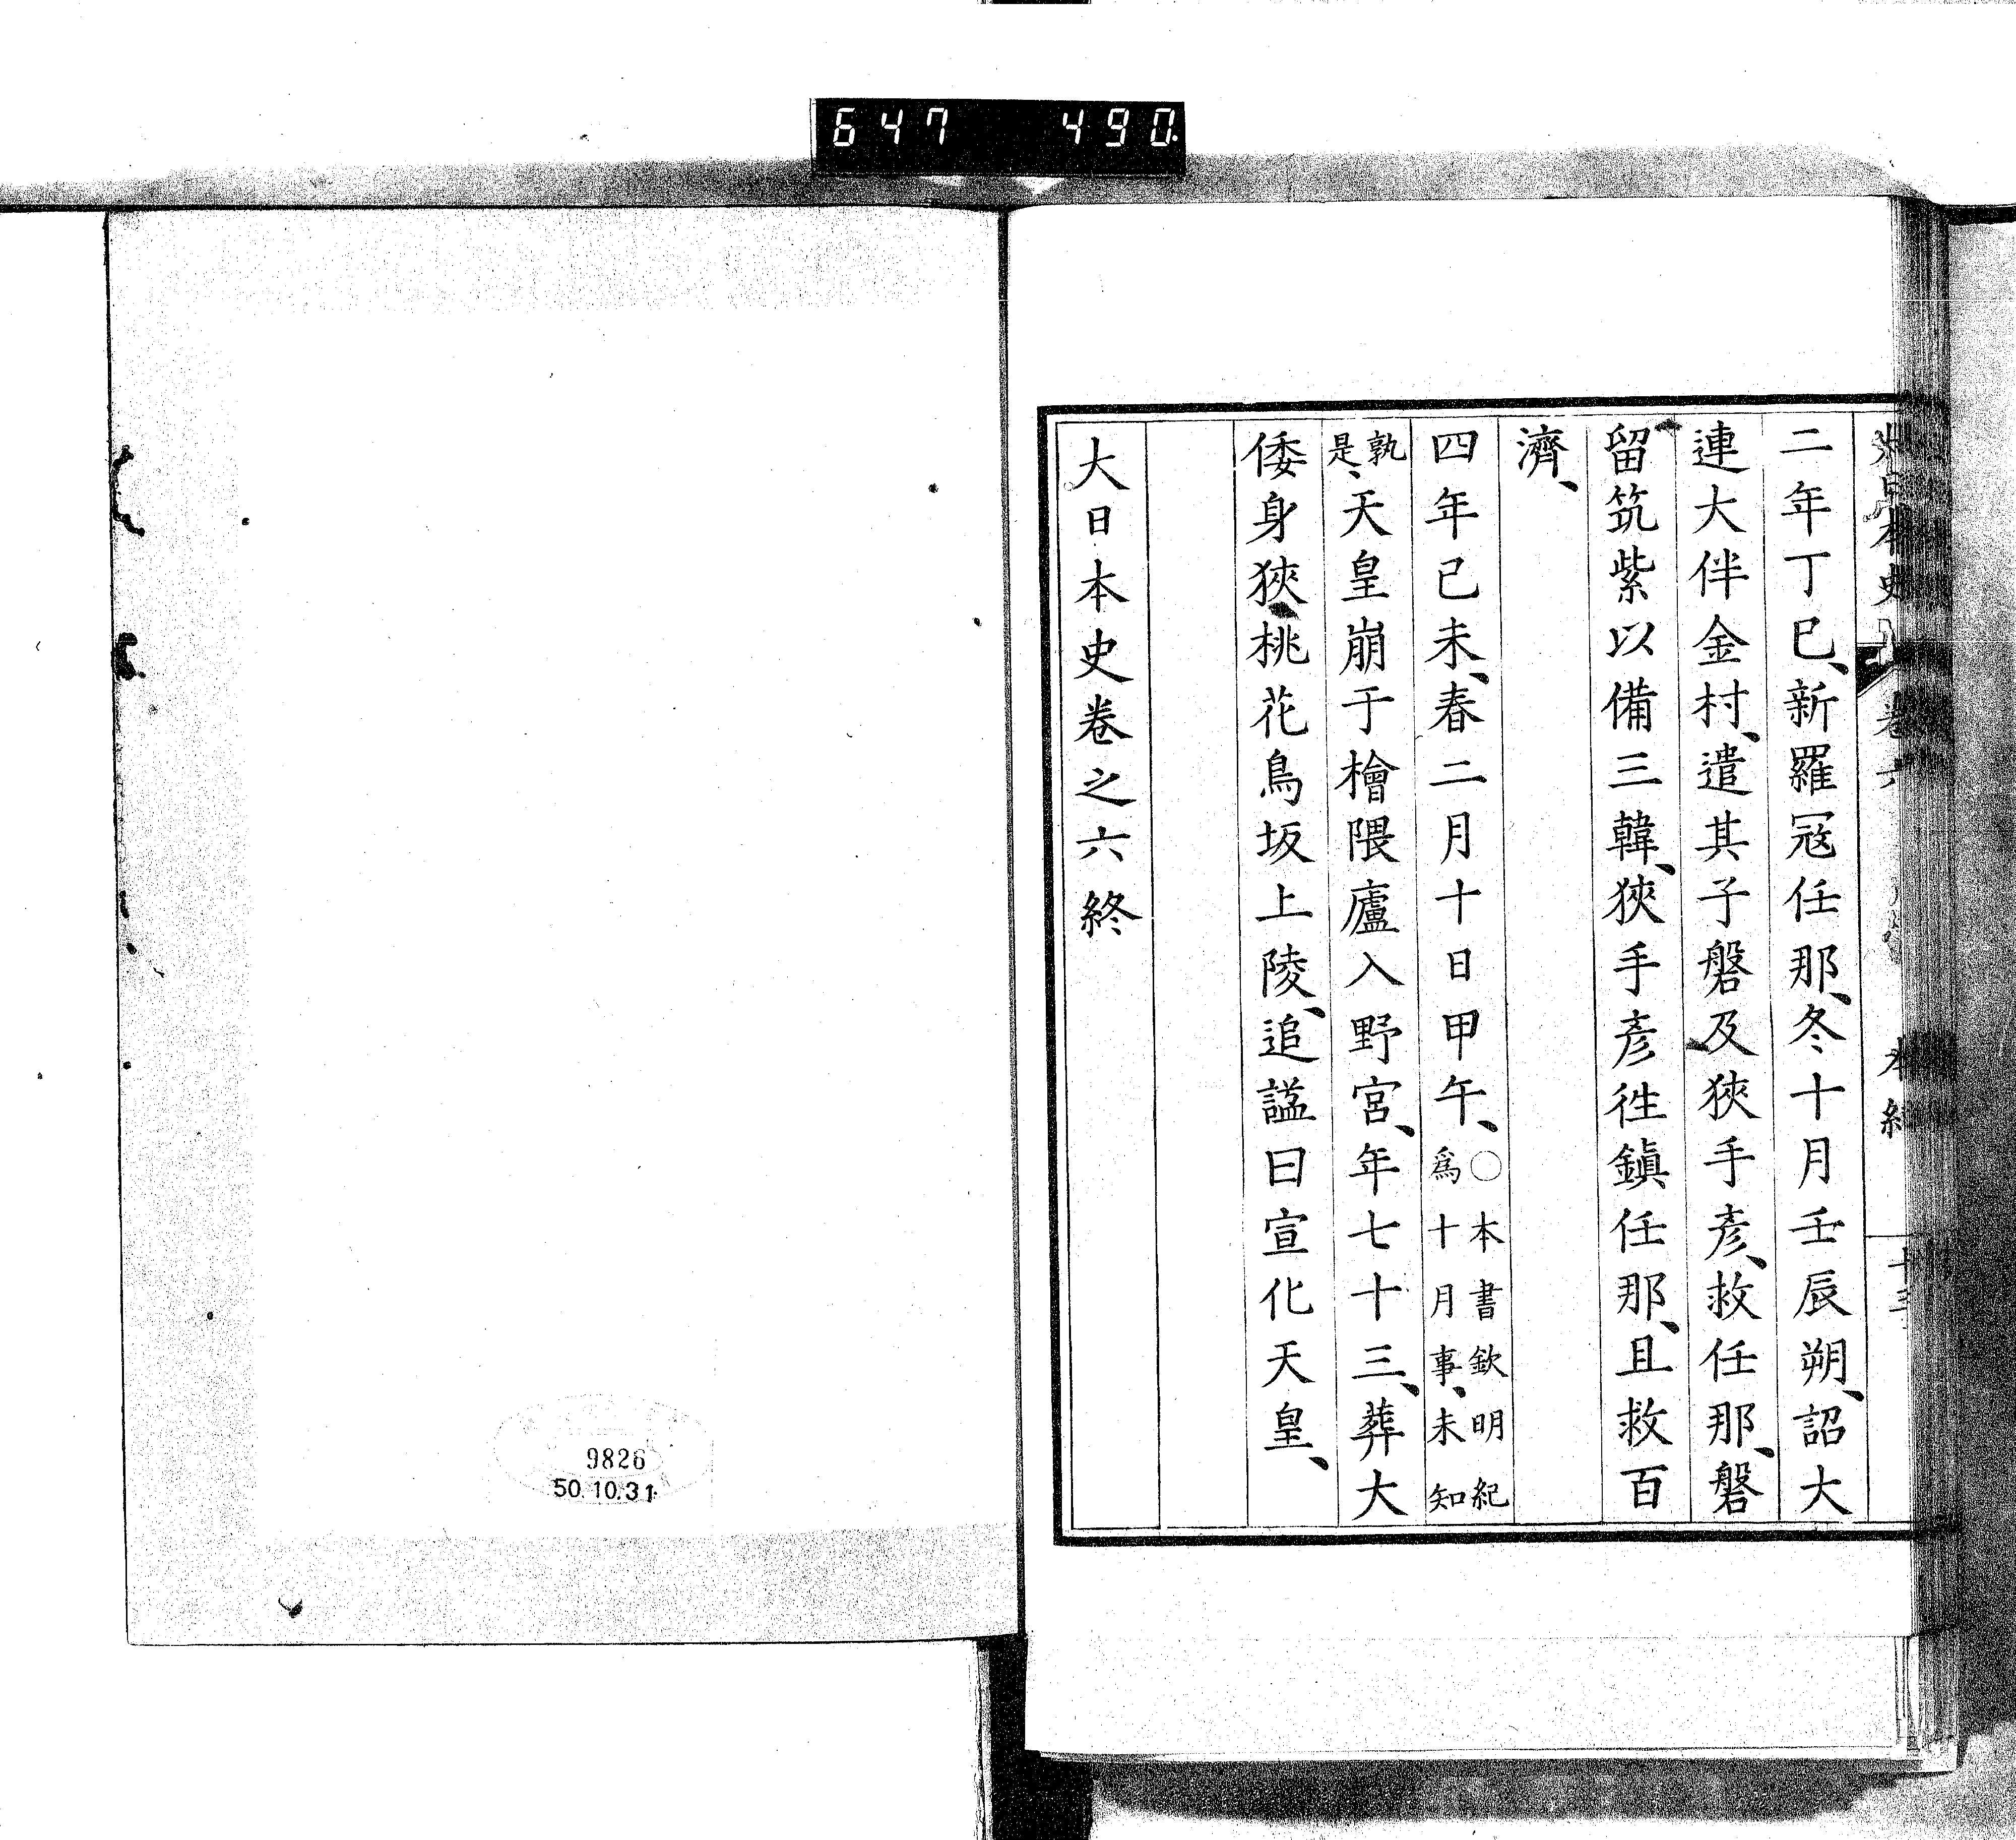 647 490.
二年丁巳、新羅冦任那、冬十月壬辰朔、詔大
連大伴金村、遣其子磐及狹手彥、救任那、磐
留筑紫以備三韓、狹手彥徃鎮任那、且救百
濟、
四年己未、春二月十日甲午、〇本書欽明紀
爲十月事、未知
孰
是、天皇崩于檜隈廬入野宮、年七十三、葬大
倭身狹桃花鳥坂上陵、追謚曰宣化天皇、
大日本史卷之六終
9826
50.10.31